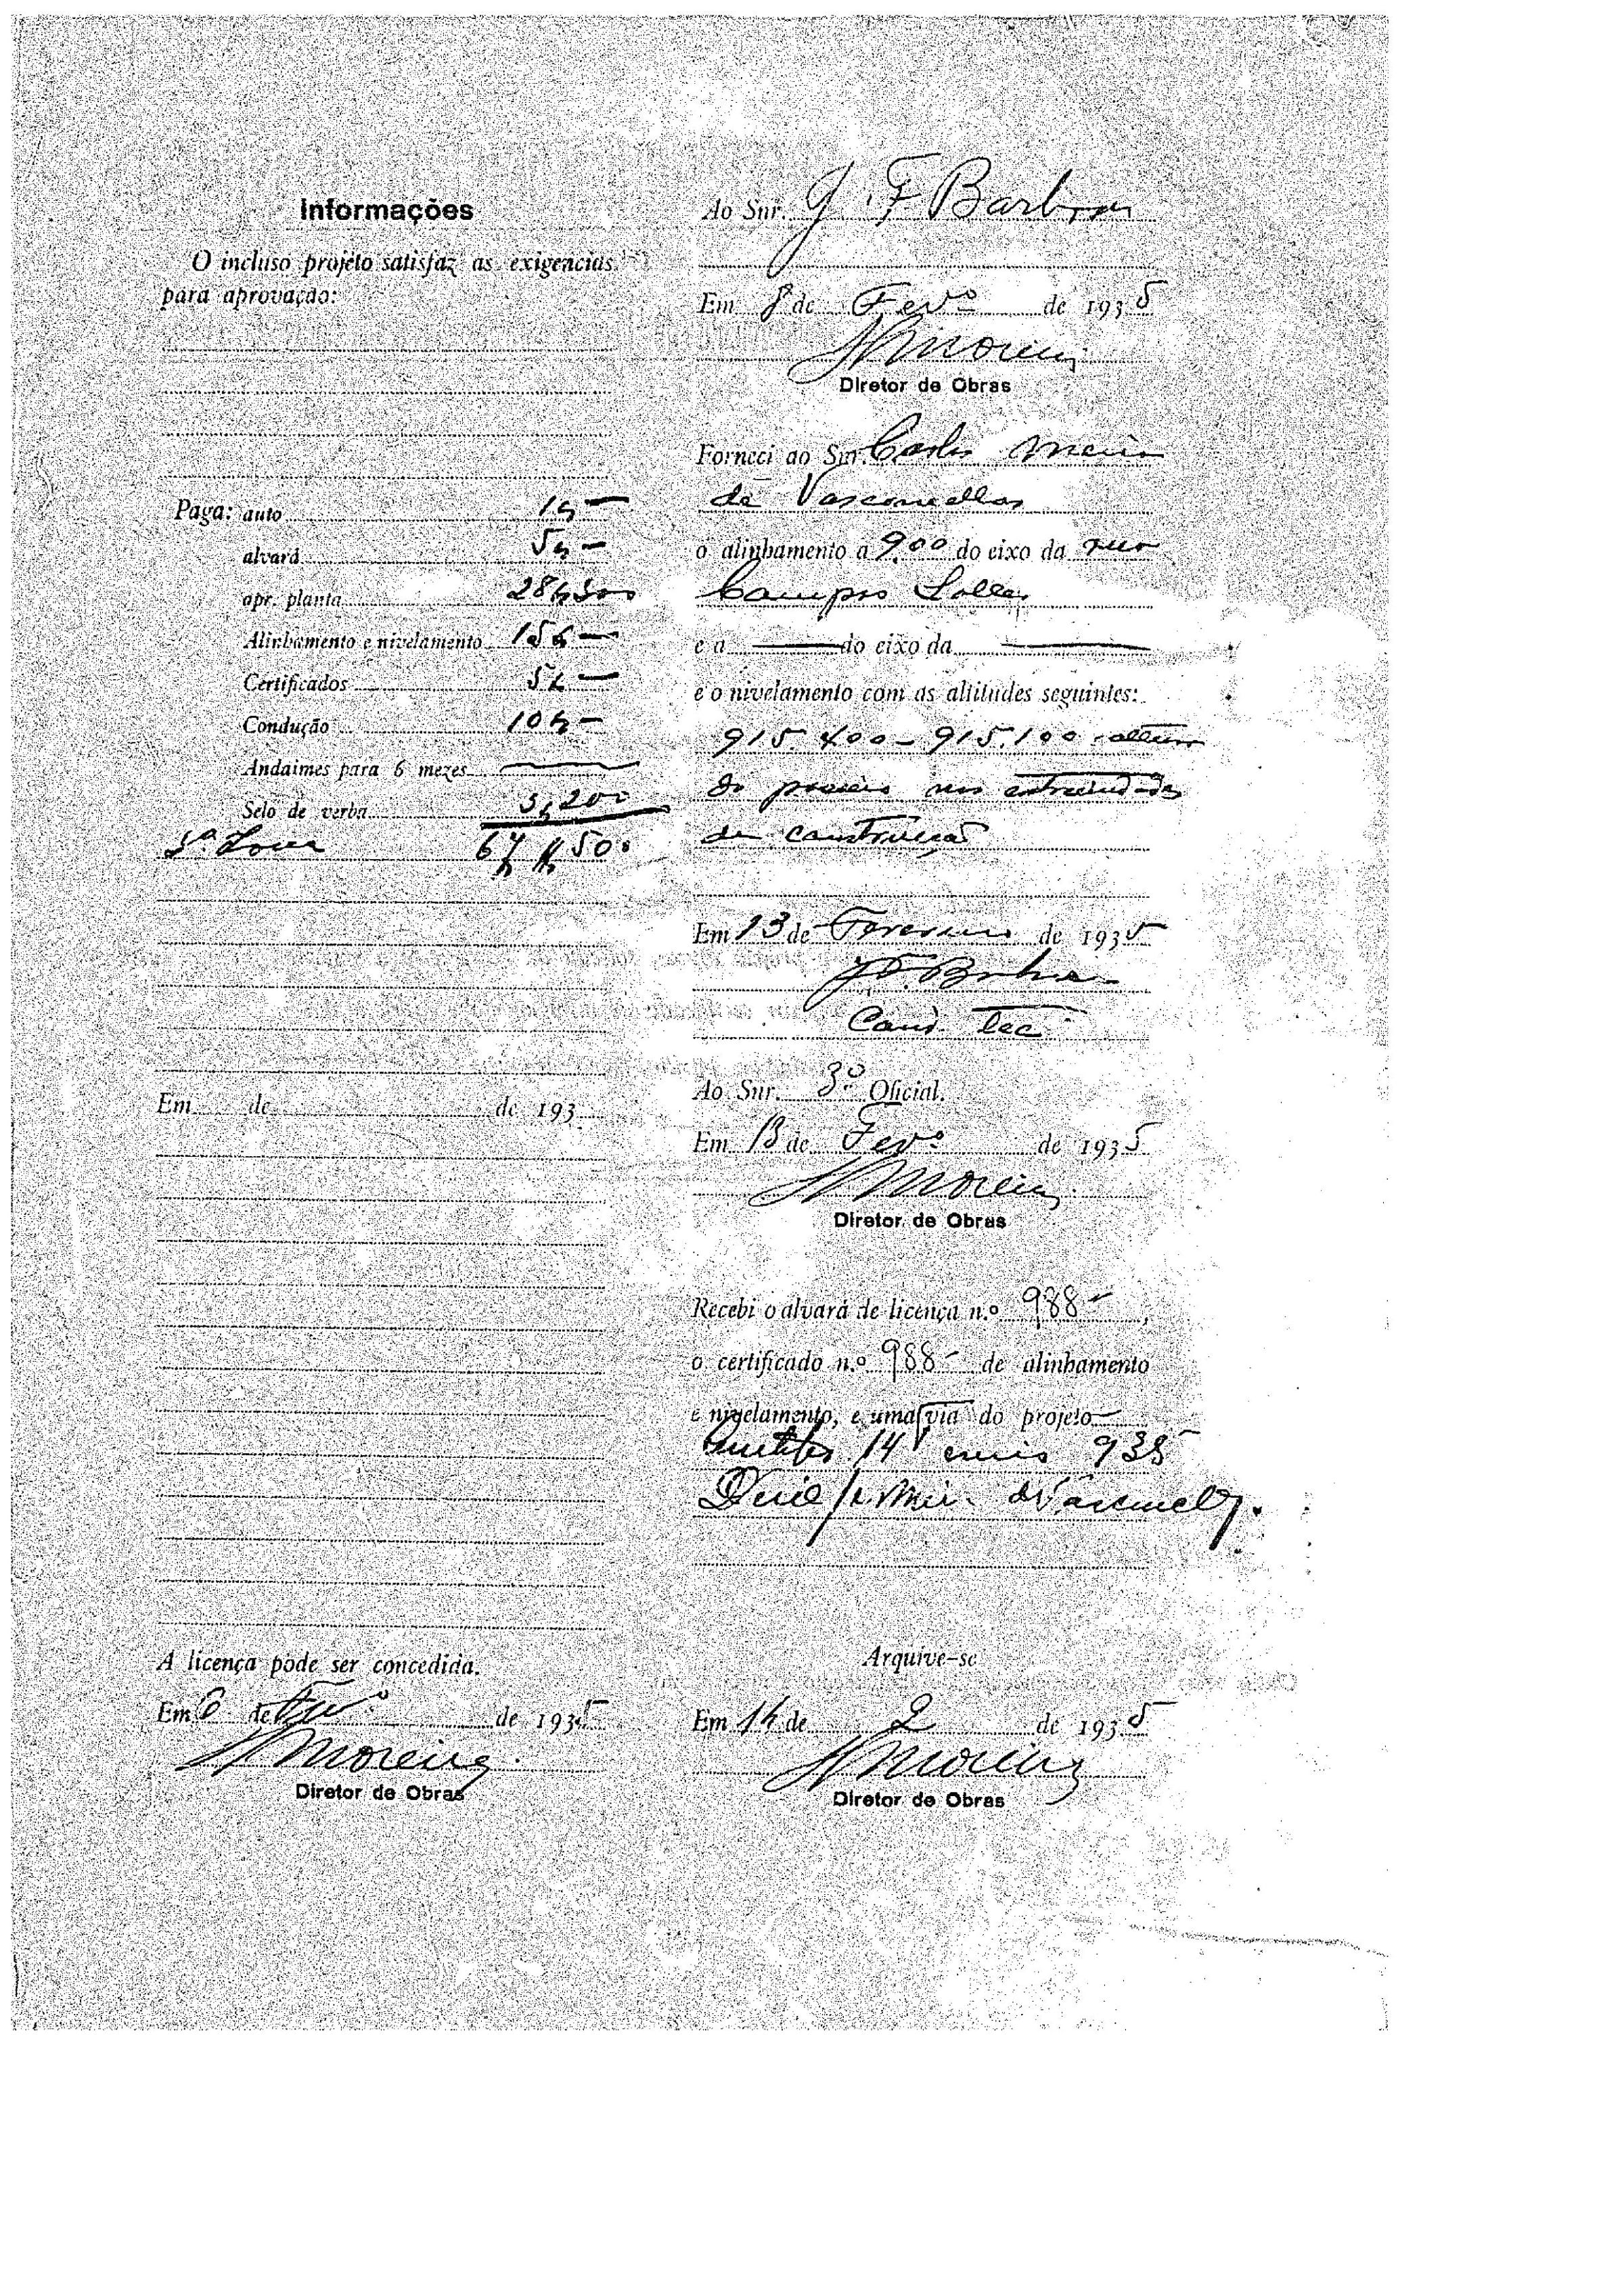 Informações
O incluso projéto satisfaz as exigencias
para aprovação:
Paga: auto 1$—
alvará 5$—
apr. planta 28$300
Alinhamento e nivelamento 15$—
Certificados 5$—
Condução 10$—
Andaimes para 6 mezes
Selo de verba 3,200
3ª Zona 67$500
Em de de 193
A licença póde ser concedida.
Em 6 de Fevº de 1935
Moreira
Diretor de Obras
Ao Snr. J. F. Barbosa
Em 8 de Fevº de 1935
Moreira
Diretor de Obras
Forneci ao Snr. Carlos Meira
de Vasconcellos
o alinhamento a 9.00 do eixo da rua
Campos Salles
e a do eixo da
e o nivelamento com as altitudes seguintes:
915.400 — 915.100 altura
do passeio nas extremidades
da construcção
Em 13 de Fevereiro de 1935
J. F. Barbosa
Cond. Tec
Ao Snr. 3º Oficial.
Em 13 de Fevº de 1935
Moreira
Diretor de Obras
Recebi o alvará de licença n.º 988—,
o certificado n.º 988— de alinhamento
e nivelamento, e uma via do projeto
14 935
Arquive-se
Em 14 de 2 de 1935
Moreira
Diretor de Obras